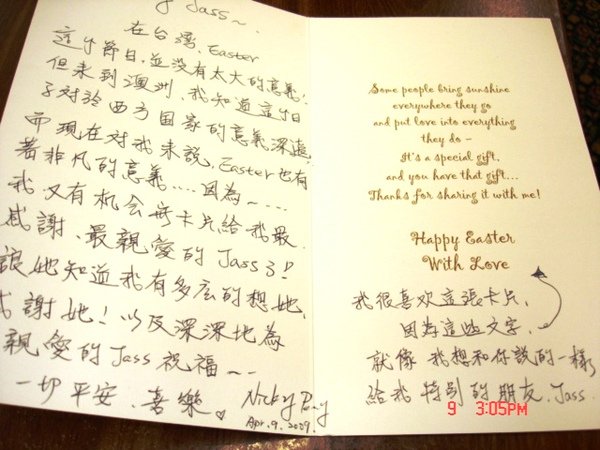 Jass~
在台湾, Easter
這个節日,並沒有太大的意義!
但來到澳洲,我知道這个日
子対於西方国家的意義深遠,
而現在対我来説, Easter也有
著非凡的意義....因為~....
我又有机会寄卡片給我最
感謝、最親愛的Jass了!
讓她知道我有多么的想她,
感謝她!以及深深地為
親愛的Jass祝福~~
一切平安、喜樂
Nicky
Apr. 9. 2009.
Some people bring sunshine
everywhere they go
and put love into everything
they do –
It's a special gift,
and you have that gift...
Thanks for sharing it with me!
Happy Easter
With Love
我很喜欢這張卡片,
因為這些文字,
就像我想和你說的一樣,
給我特別的朋友, Jass.
9 3:05PM